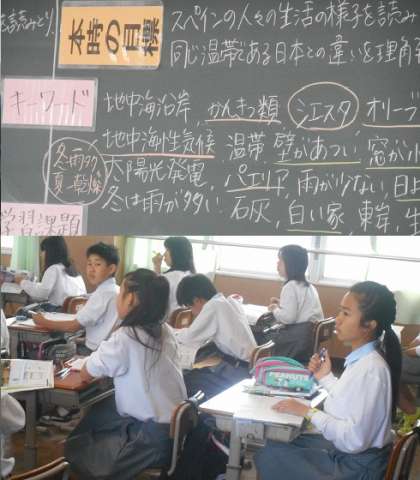 を読みとり、
本時の目標
スペインの人々の生活の様子を読み
同じ温帯である日本との違いを理解
キーワード
地中海沿岸、かんきつ類、シエスタ オリーブ
地中海性気候 温帯、壁があつい、窓が小
太陽光発電、パエリア、雨が少ない、日
冬は雨が多い 石灰、白い家、東岸、生
冬雨多く
夏乾燥
学習課題
PEANUTS